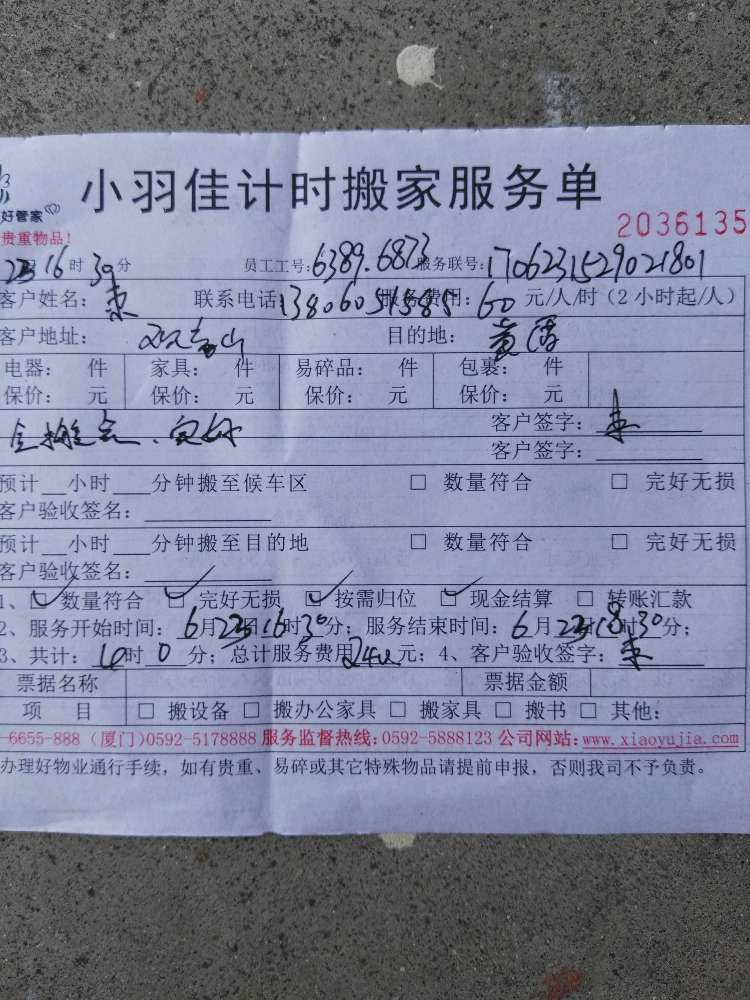 小羽佳计时搬家服务单
好管家
2036135
贵重物品！
16时30分 员工工号：6389.6873 服务联号：1706231529021801
客户姓名： 联系电话 服务费用：60元/人/时（2小时起/人）
客户地址： 观音山 目的地： 黄厝
电器： 件 家具： 件 易碎品： 件 包裹： 件
保价： 元 保价： 元 保价： 元 保价： 元
客户签字：
客户签字：
预计__小时___分钟搬至候车区 □ 数量符合 □ 完好无损
客户验收签名：
预计__小时___分钟搬至目的地 □ 数量符合 □ 完好无损
客户验收签名：
1、☑ 数量符合 ☑ 完好无损 ☑ 按需归位 ☑ 现金结算 □ 转账汇款
2、服务开始时间：6月23日16时30分；服务结束时间：6月23日18时30分；
3、共计：4时0分；总计服务费用240元；4、客户验收签字：
票据名称 票据金额
项 目 □ 搬设备 □ 搬办公家具 □ 搬家具 □ 搬书 □ 其他：
-6655-888（厦门）0592-5178888 服务监督热线：0592-5888123 公司网站：www.xiaoyujia.com
办理好物业通行手续，如有贵重、易碎或其它特殊物品请提前申报，否则我司不予负责。